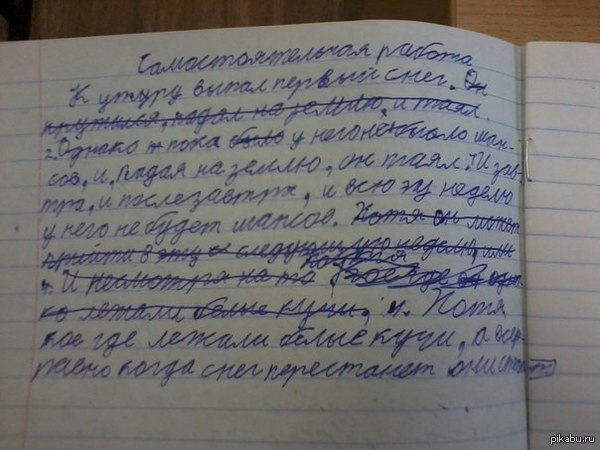 Самостоятельная работа
К утру выпал первый снег. Он
кружился, падал на землю, и таял.
2. Однако пока было у него не было шан-
сов, и, падая на землю, он таял. И зав-
тра, и послезавтра, и всю эту неделю
у него не будет шансов. Хотя он может
прийти в эту следующую неделю, или
ч. И несмотря на то
ко лежали белые кучи, ч. Хотя
кое где лежали белые кучи, а всёр-
равно когда снег перестанет они
pikabu.ru